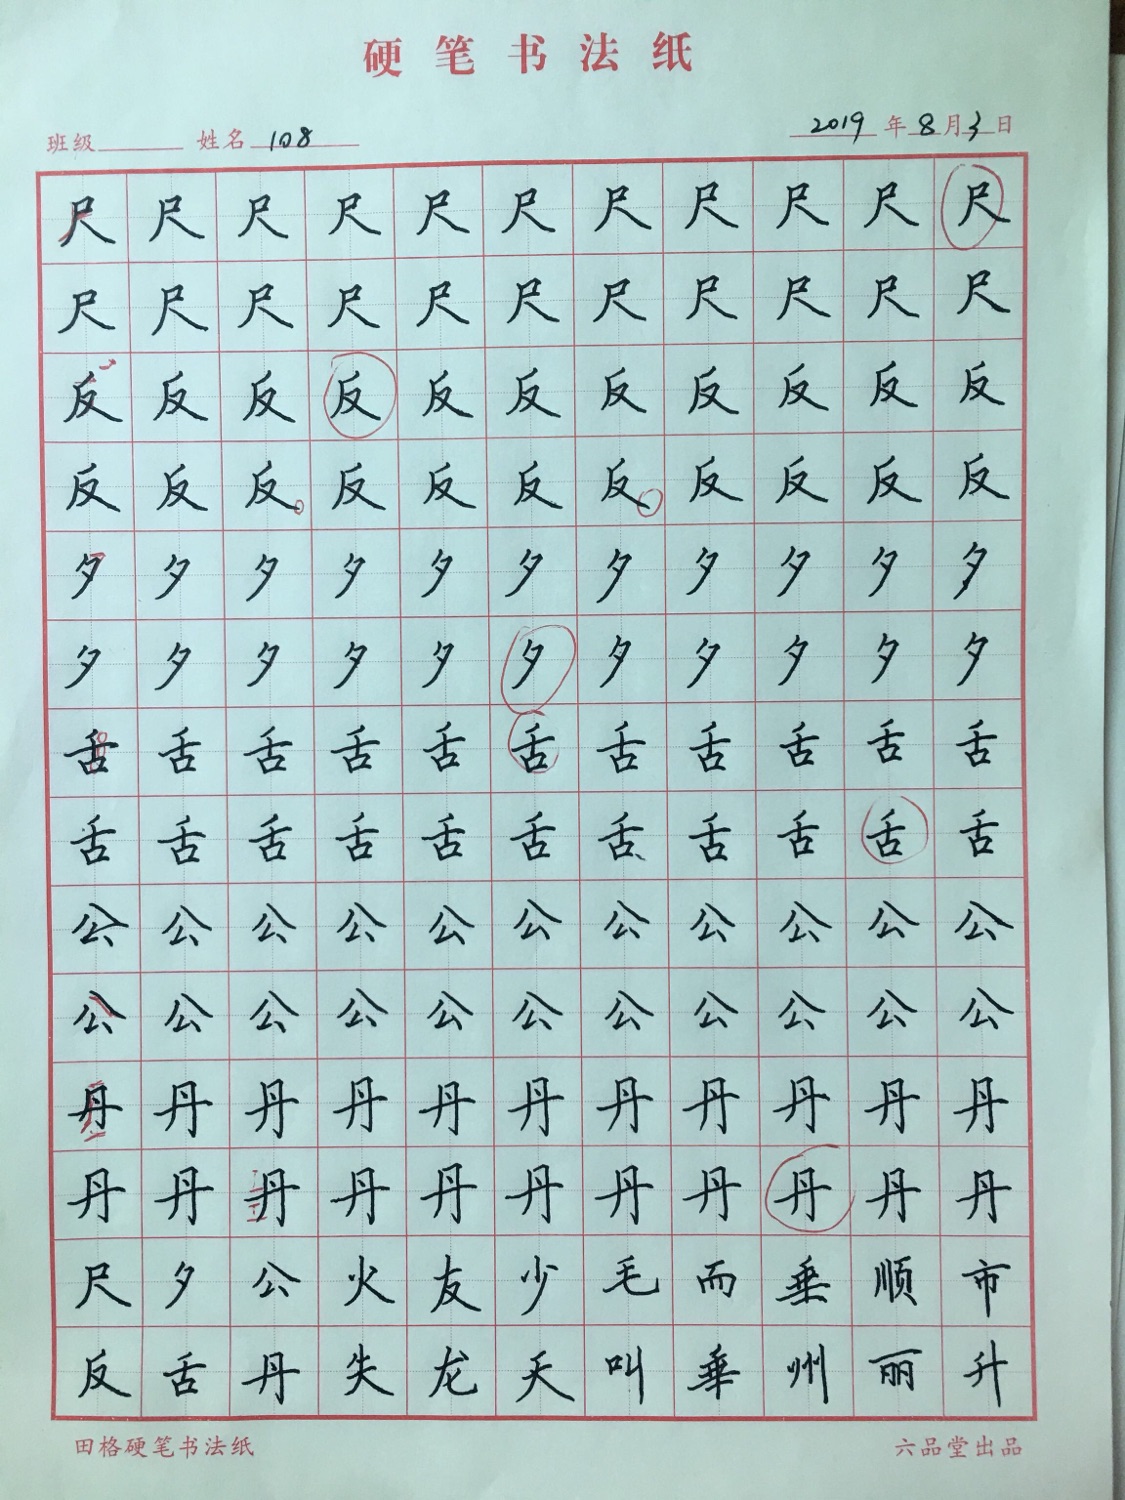 硬笔书法纸
班级 姓名 108 2019年8月3日
尺尺尺尺尺尺尺尺尺尺尺
尺尺尺尺尺尺尺尺尺尺尺
反反反反反反反反反反反
反反反反反反反反反反反
夕夕夕夕夕夕夕夕夕夕夕
夕夕夕夕夕夕夕夕夕夕夕
舌舌舌舌舌舌舌舌舌舌舌
舌舌舌舌舌舌舌舌舌舌舌
公公公公公公公公公公公
公公公公公公公公公公公
丹丹丹丹丹丹丹丹丹丹丹
丹丹丹丹丹丹丹丹丹丹丹
尺夕公火友少毛而垂顺市
反舌丹失龙天叫垂州丽升
田格硬笔书法纸 六品堂出品